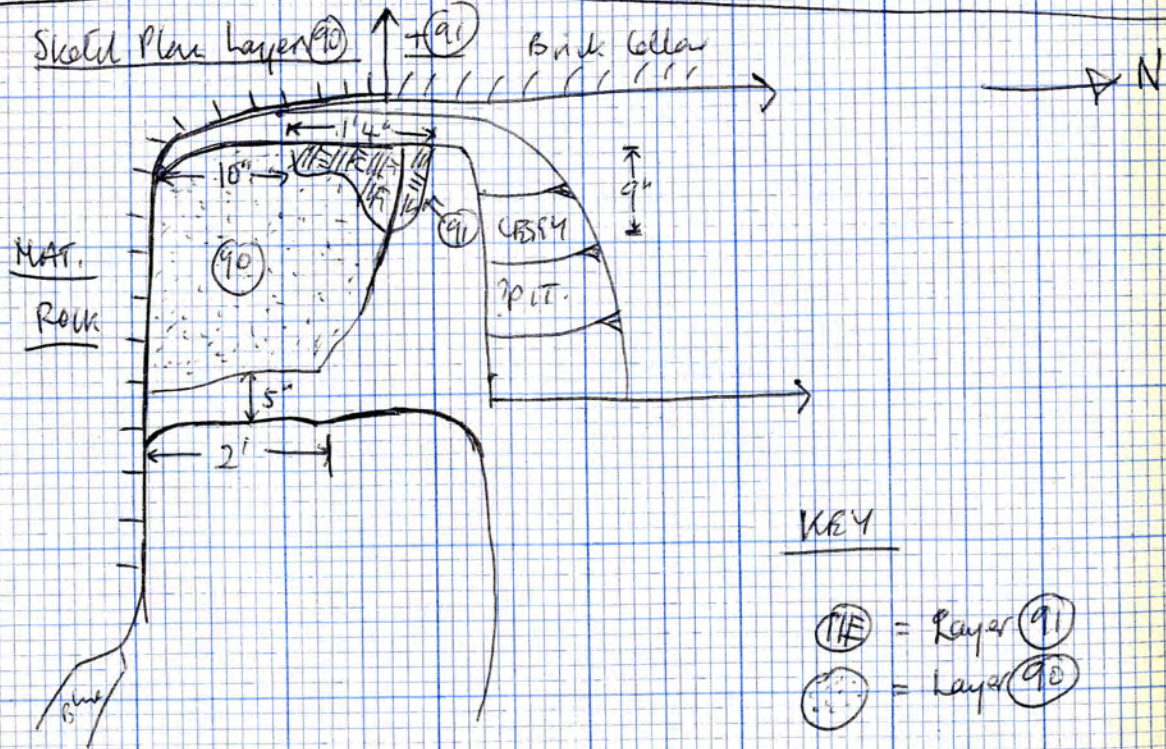 Sketch Plan Layer 90 + 91
Brick Cellar
N
1'4"
10"
9"
91
CESSY
?PIT.
90
NAT.
ROCK
5"
2'
KEY
= Layer 91
= Layer 90